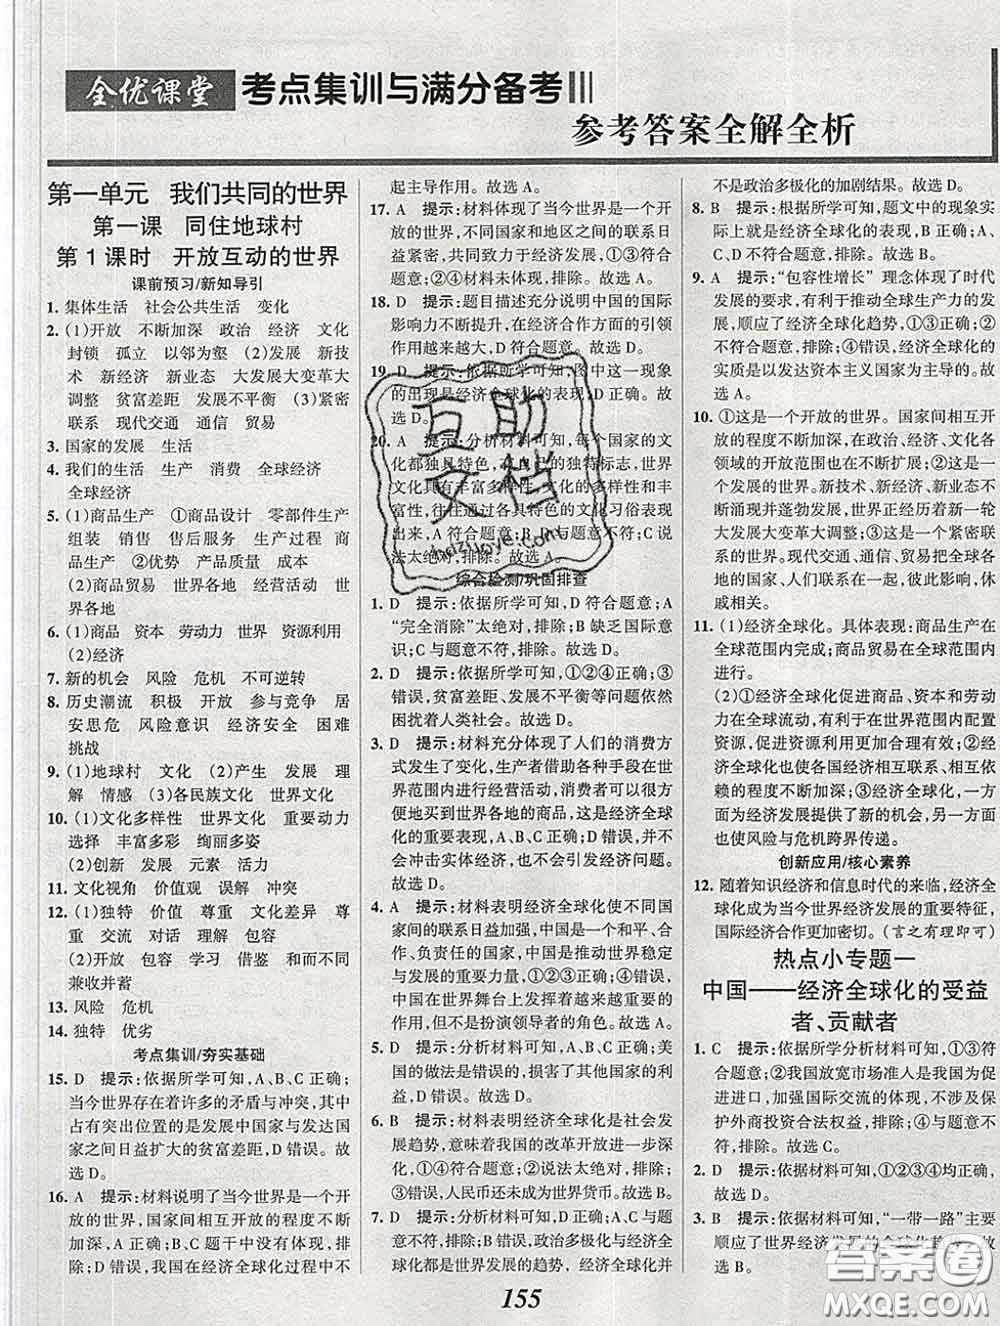 全优课堂 考点集训与满分备考Ⅲ
参考答案全解全析
第一单元 我们共同的世界
第一课 同住地球村
第1课时 开放互动的世界
课前预习/新知导引
1. 集体生活 社会公共生活 变化
2. (1)开放 不断加深 政治 经济 文化
封锁 孤立 以邻为壑 (2)发展 新技
术 新经济 新业态 大发展大变革大
调整 贫富差距 发展不平衡 (3)紧密
联系 现代交通 通信 贸易
3. 国家的发展 生活
4. 我们的生活 生产 消费 全球经济
全球经济
5. (1)商品生产 ①商品设计 零部件生产
组装 销售 售后服务 生产过程 商
品生产 ②优势 产品质量 成本
(2)商品贸易 世界各地 经营活动 世
界各地
6. (1)商品 资本 劳动力 世界 资源利用
(2)经济
7. 新的机会 风险 危机 不可逆转
8. 历史潮流 积极 开放 参与竞争 居
安思危 风险意识 经济安全 困难
挑战
9. (1)地球村 文化 (2)产生 发展 理
解 情感 (3)各民族文化 世界文化
10. (1)文化多样性 世界文化 重要动力
选择 丰富多彩 绚丽多姿
(2)创新 发展 元素 活力
11. 文化视角 价值观 误解 冲突
12. (1)独特 价值 尊重 文化差异 尊
重 交流 对话 理解 包容
(2)开放 包容 学习 借鉴 和而不同
兼收并蓄
13. 风险 危机
14. 独特 优劣
考点集训/夯实基础
15. D 提示:依据所学可知,A、B、C正确;
当今世界存在着许多的矛盾与冲突,其中
占有突出位置的是发展中国家与发达国
家之间日益扩大的贫富差距,D错误。故
选D。
16. A 提示:材料说明了当今世界是一个开
放的世界,国家间相互开放的程度不断
加深,A正确;B、C题干中没有体现,排
除;D错误,在经济全球化过程中不
起主导作用。故选A。
17. A 提示:材料体现了当今世界是一个开
放的世界,不同国家和地区之间的联系日
益紧密,共同致力于经济发展,①③符合
题意;②④材料未体现,排除。故选A。
18. D 提示:题目描述充分说明中国的国际
影响力不断提升,在经济合作方面的引领
作用越来越大,D符合题意。故选D。
19. D 提示:依据所学可知,图中这一现象
的出现是经济全球化的表现,D正确。
故选D。
20. A 提示:分析材料可知,每个国家的文
化都独具特色,有自己的独特标志,世界
文化具有丰富多样性,文化的多样性和丰
富性,往往通过各具特色的文化习俗表现
出来,A符合题意,B、D未体现,排除;C说
法太绝对,排除。故选A。
综合检测/巩固排查
1. D 提示:依据所学可知,D符合题意;A
“完全消除”太绝对,排除;B缺乏国际意
识;C与题意无关,排除。故选D。
2. D 提示:依据所学可知,①②④正确;③
错误,贫富差距、发展不平衡等问题依然
困扰着人类社会。故选D。
3. D 提示:材料充分体现了人们的消费方
式发生了变化,生产者借助各种手段在世
界范围内进行经营活动,消费者可以很方
便地买到世界各地的商品,这是经济全球
化的重要表现,A、B、C正确;D错误,并不
会冲击实体经济,也不会引发经济问题。
故选D。
4. A 提示:材料表明经济全球化使不同国
家间的联系日益加强,中国是一个和平、合
作、负责任的国家,中国是推动世界稳定与
发展的重要力量,①②③正确;④错误,中
国在世界舞台上发挥着越来越重要的作
用,但不是扮演领导角色。故选A。
5. D 提示:分析材料可知,A、B、C正确;美
国的做法是错误的,损害了其他国家的利
益,不利于经济全球化的发展,D错误。故
选D。
6. B 提示:材料表明经济全球化是社会发
展趋势,意味着我国的改革开放进一步深
化,①④正确;②说法太绝对,排除;
③错误,人民币还未成为世界货币。故选B。
7. D 提示:分析材料可知,A、B、C正确;D
错误,政治多极化与经济全球化都是世界
发展的趋势,经济全球化并
不是政治多极化的加剧结果。故选D。
8. B 提示:根据所学可知,题文中的现象实
际上就是经济全球化的表现,B正确;A、C、
D均不符合题意,排除。故选B。
9. A 提示:“包容性增长”理念体现了时代
发展的要求,有利于推动全球生产力的发
展,顺应了经济全球化趋势,①③正确;②
不符合题意,排除;④错误,经济全球化的
实质是以发达资本主义国家为主导的。故
选A。
10. ①这是一个开放的世界。国家间相互开
放的程度不断加深,在政治、经济、文化各
领域的开放范围也在不断扩展;②这是一
个发展的世界。新技术、新经济、新业态不
断涌现并蓬勃发展,世界正经历着新一轮
大发展大变革大调整;③这是一个紧密联
系的世界。现代交通、通信、贸易把全球各
地的国家、人们联系在一起,彼此影响,休
戚相关。
11. (1)经济全球化。具体表现:商品生产在
全球范围内完成;商品贸易在全球范围内
进行。
(2)①经济全球化促进商品、资本和劳动
力在全球流动,有利于在世界范围内配置
资源,促进资源利用更加合理有效;②经济
全球化也使各国经济相互联系、相互依
赖的程度不断加深;③经济全球化,一方
面为经济发展提供了新的机会,另一方面
也使风险与危机跨界传递。
创新应用/核心素养
12. 随着知识经济和信息时代的来临,经济全
球化成为当今世界经济发展的重要特征,
国际经济合作更加密切。(言之有理即可)
热点小专题一
中国——经济全球化的受益
者、贡献者
1. C 提示:依据所学分析材料可知,①③符
合题意;②我国放宽市场准入是为了促
进进口,加强国际交流的体现,不涉及保
护外商投资合法权益,排除;④与题意不
符,排除。故选C。
2. D 提示:依据材料可知,①②③④均正确。
故选D。
3. B 提示:依据材料可知,“一带一路”主要
顺应了世界经济发展的全球化趋势,
155
互助文档
hdzuoye.com
答案圈
MXQE.COM